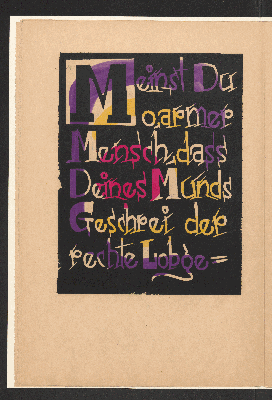 Meinst Du
o, armer
Mensch, dass
Deines Munds
Geschrei der
rechte Lobge=